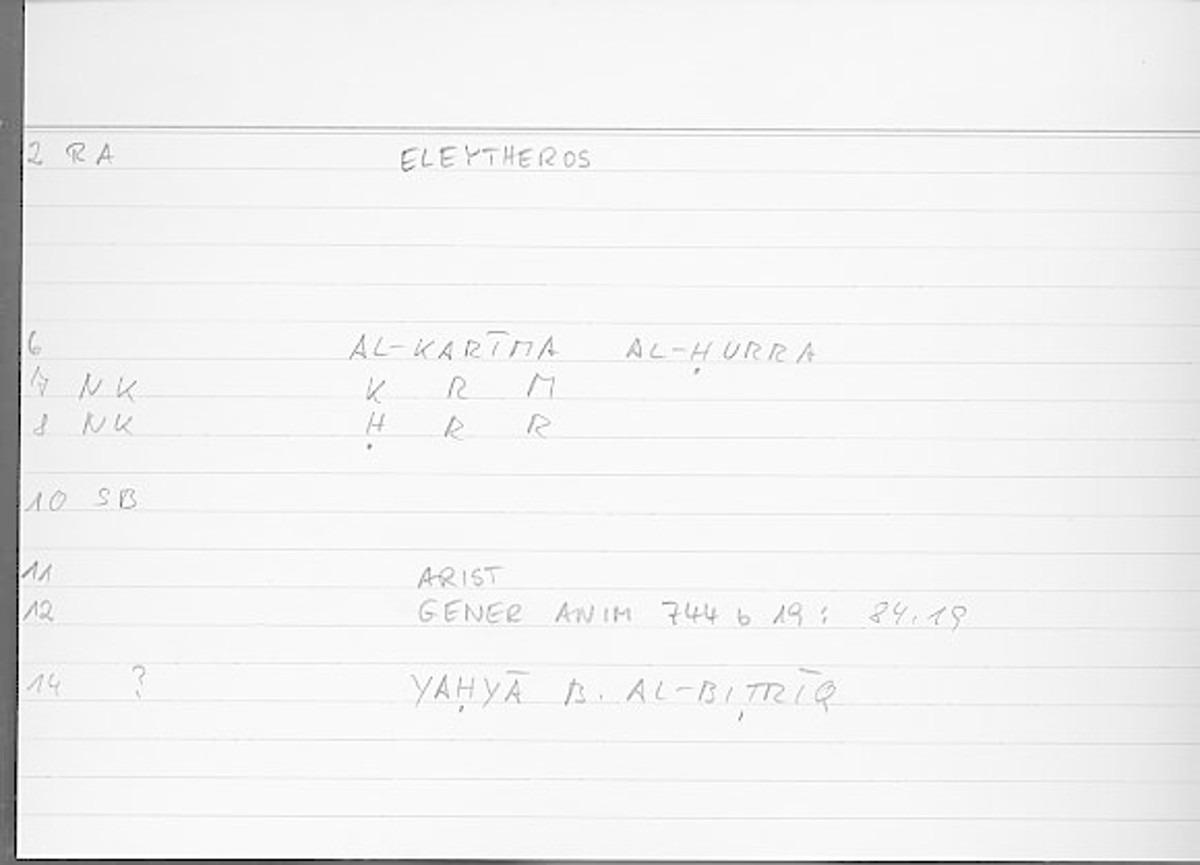 2 RA ELEYTHEROS
6 AL-KARĪMA AL-ḤURRA
7 NK K R M
8 NK Ḥ R R
10 SB
11 ARIST
12 GENER ANIM 744 b 19 : 84.19
14 ? YAḤYĀ B. AL-BIṬRĪQ